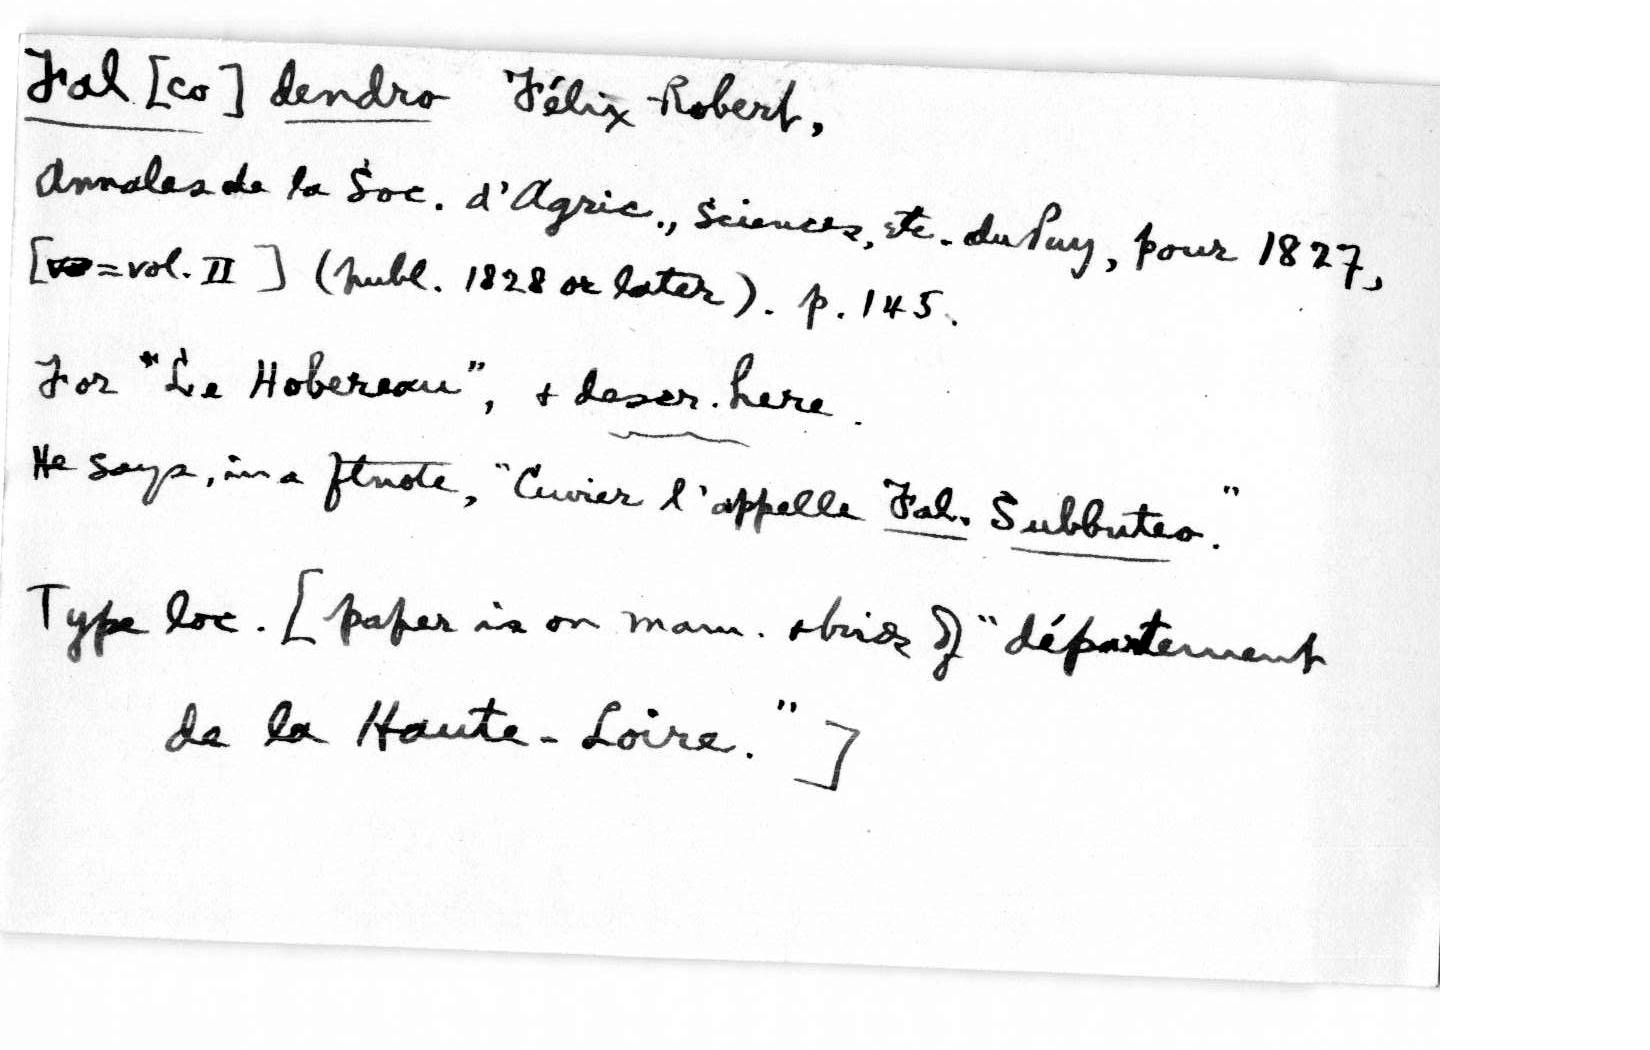 Fal [co] dendro Félix-Robert,
Annales de la Soc. d'Agric., Sciences, etc. du Puy, pour 1827,
[= vol. II] (publ. 1828 or later). p. 145.
For "Le Hobereau", + descr. here.
He says, in a ftnote, "Cuvier l'appelle Fal. Subbuteo."
Type loc. [paper is on mam. + birds of "département
de la Haute-Loire."]